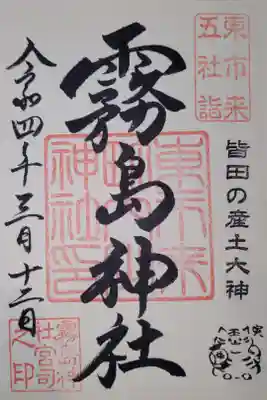 東市来
五社詣
皆田の産土大神
霧島神社
令和四年三月十二日
霧島神
社宮司
之印